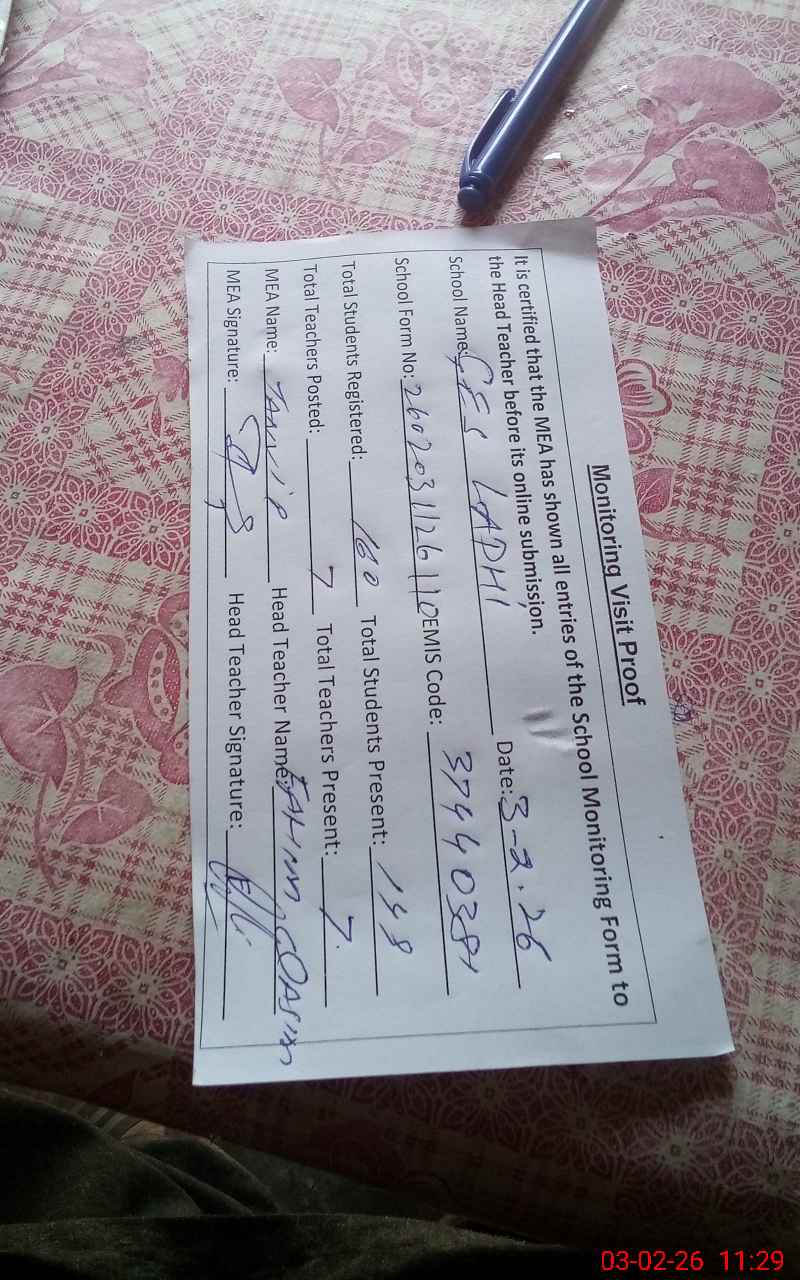 Monitoring Visit Proof
It is certified that the MEA has shown all entries of the School Monitoring Form to
the Head Teacher before its online submission.
School Name: GES LADHI Date: 3-2.26
School Form No: 2602031126110 EMIS Code: 37440381
Total Students Registered: 160 Total Students Present: 148
Total Teachers Posted: 7 Total Teachers Present: 7.
MEA Name: Tanvir Head Teacher Name: FAHIM QASIM
MEA Signature: Head Teacher Signature:
03-02-26 11:29